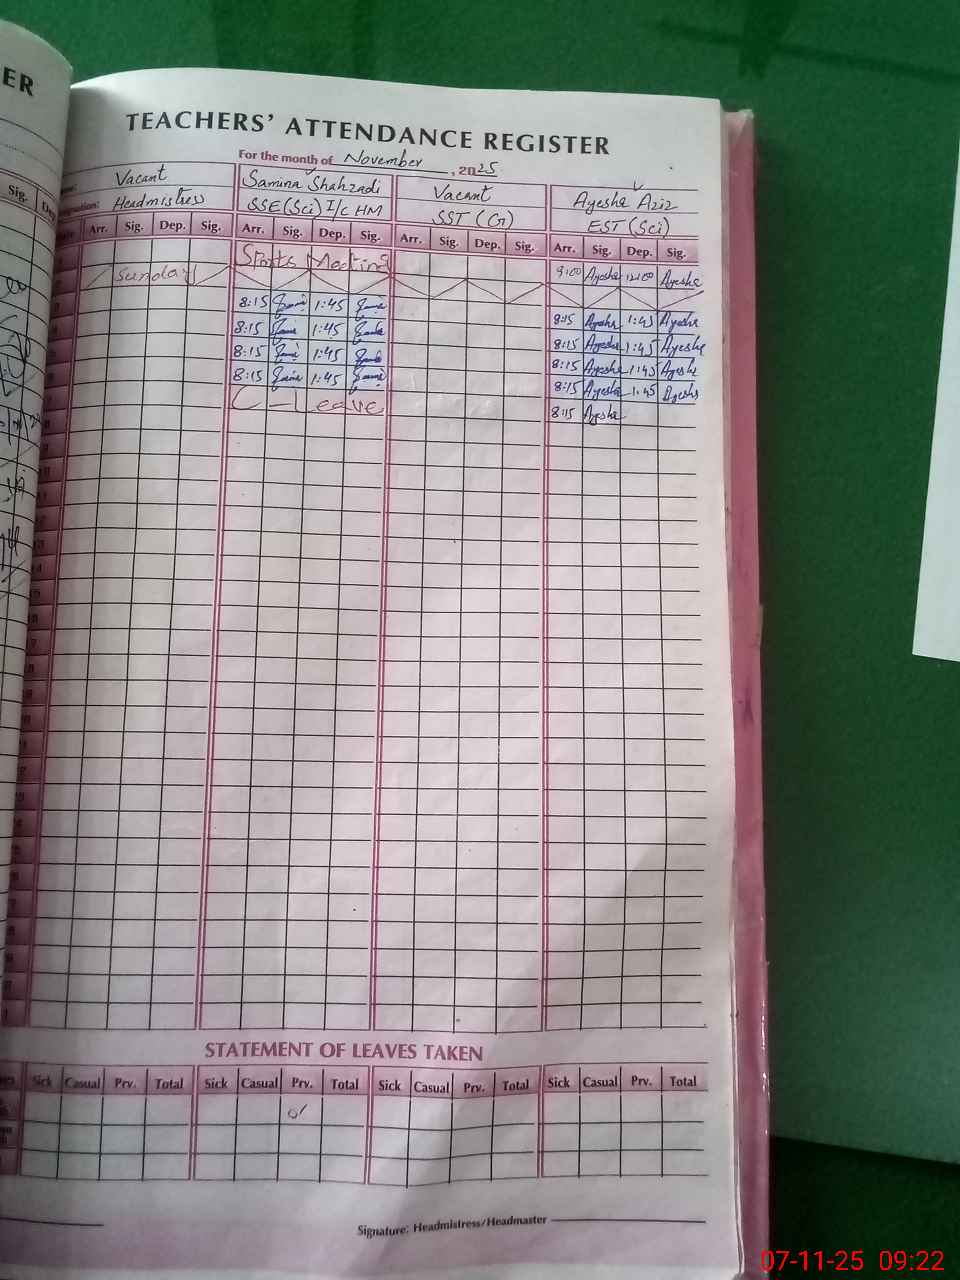 ER
TEACHERS' ATTENDANCE REGISTER
For the month of November, 2025
Vacant Samina Shahzadi Vacant Ayesha Aziz
Headmistress SSE(Sci) I/C HM SST (G) EST (Sci)
Sig. Arr. Sig. Dep. Sig. Arr. Sig. Dep. Sig. Arr. Sig. Dep. Sig. Arr. Sig. Dep. Sig.
Sports Meeting 9:00 Ayesha 12:00 Ayesha
Sunday
8:15 1:45 8:15 Ayesha 1:45 Ayesha
8:15 1:45 8:15 Ayesha 1:45 Ayesha
8:15 1:45 8:15 Ayesha 1:45 Ayesha
8:15 1:45 8:15 Ayesha 1:45 Ayesha
C-Leave 8:15 Ayesha
STATEMENT OF LEAVES TAKEN
Sick Casual Prv. Total Sick Casual Prv. Total Sick Casual Prv. Total Sick Casual Prv. Total
Signature: Headmistress/Headmaster
07-11-25 09:22